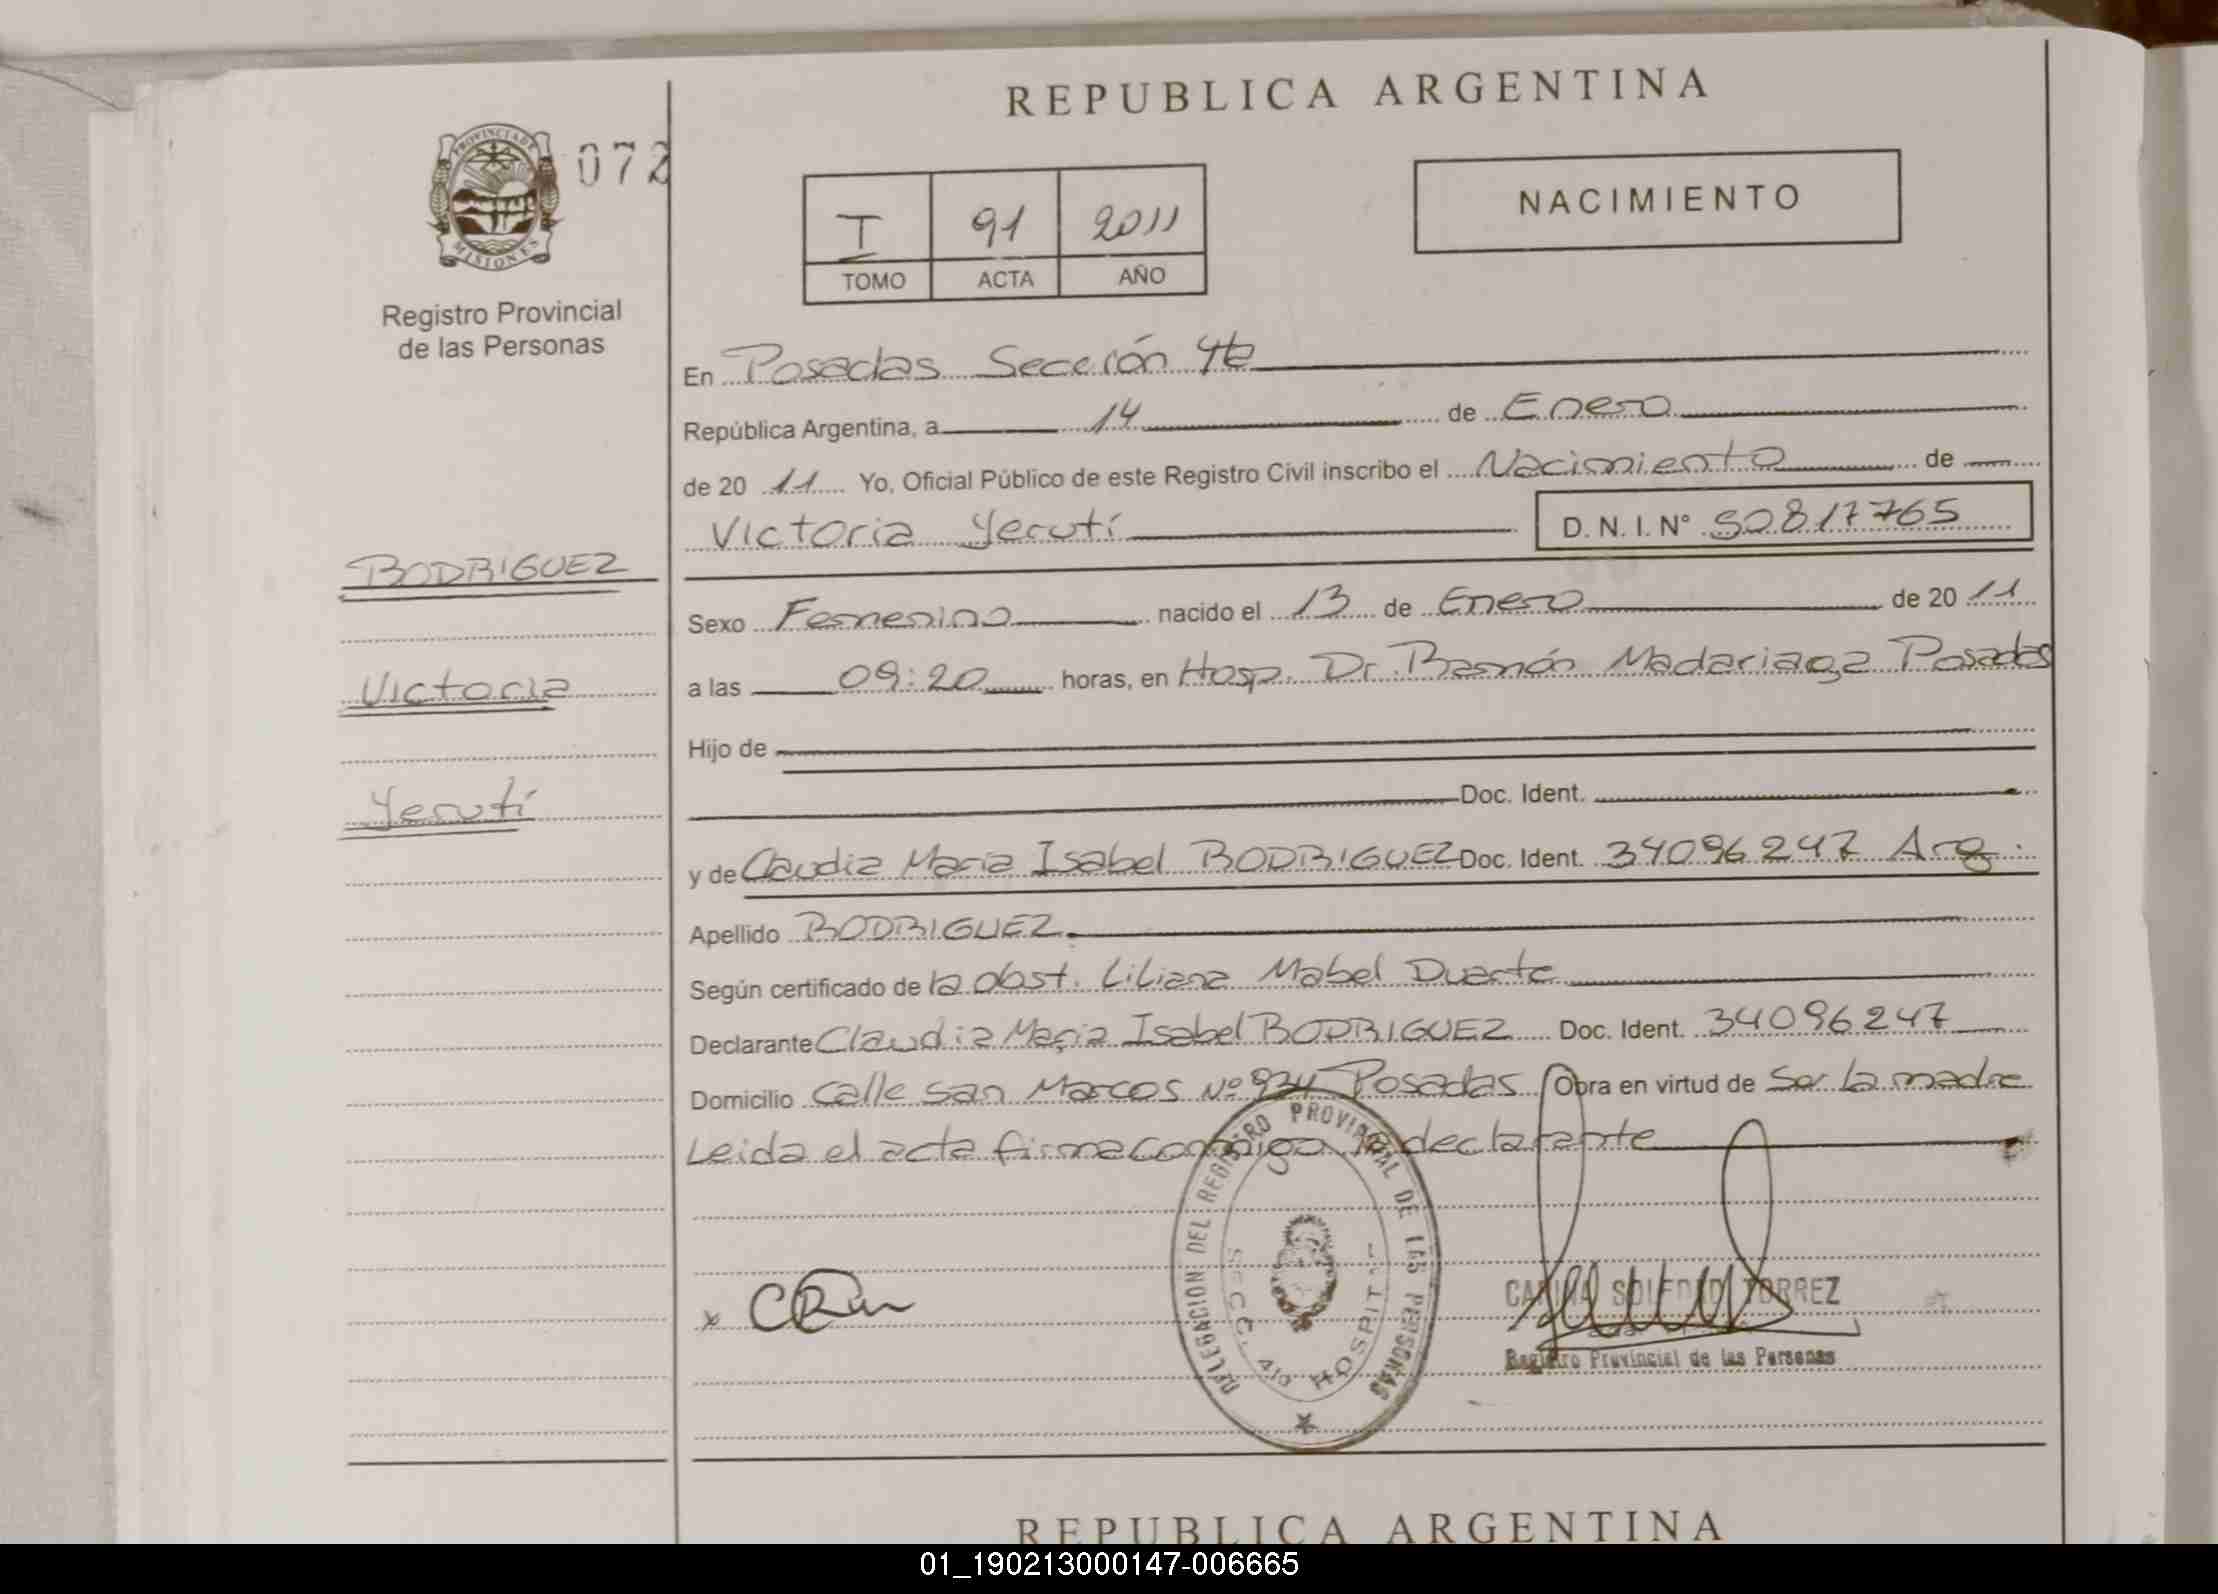 REPUBLICA ARGENTINA
PROVINCIA DE
MISIONES
072
Registro Provincial
de las Personas
I 91 2011
TOMO ACTA AÑO
NACIMIENTO
En Posadas Sección 4ta
República Argentina, a 14 de Enero
de 20 11 Yo, Oficial Público de este Registro Civil inscribo el Nacimiento de
Victoria Yerutí D. N. I. N° 50817765
RODRIGUEZ
Sexo Femenino nacido el 13 de Enero de 20 11
Victoria
a las 09:20 horas, en Hosp. Dr. Ramón Madariaga Posadas
Hijo de
Doc. Ident.
Yerutí
y de Claudia Maria Isabel RODRIGUEZ Doc. Ident. 34096247 Arg.
Apellido RODRIGUEZ
Según certificado de la obst. Liliana Mabel Duarte
Declarante Claudia Maria Isabel RODRIGUEZ Doc. Ident. 34096247
Domicilio Calle San Marcos Nº 934 Posadas Obra en virtud de Ser la madre
Leida el acta firma conmigo la declarante
DELEGACION DEL REGISTRO PROVINCIAL DE LAS PERSONAS
SECC. 4ta HOSPITAL
SOLEDAD TORREZ
Registro Provincial de las Personas
REPUBLICA ARGENTINA
01_190213000147-006665